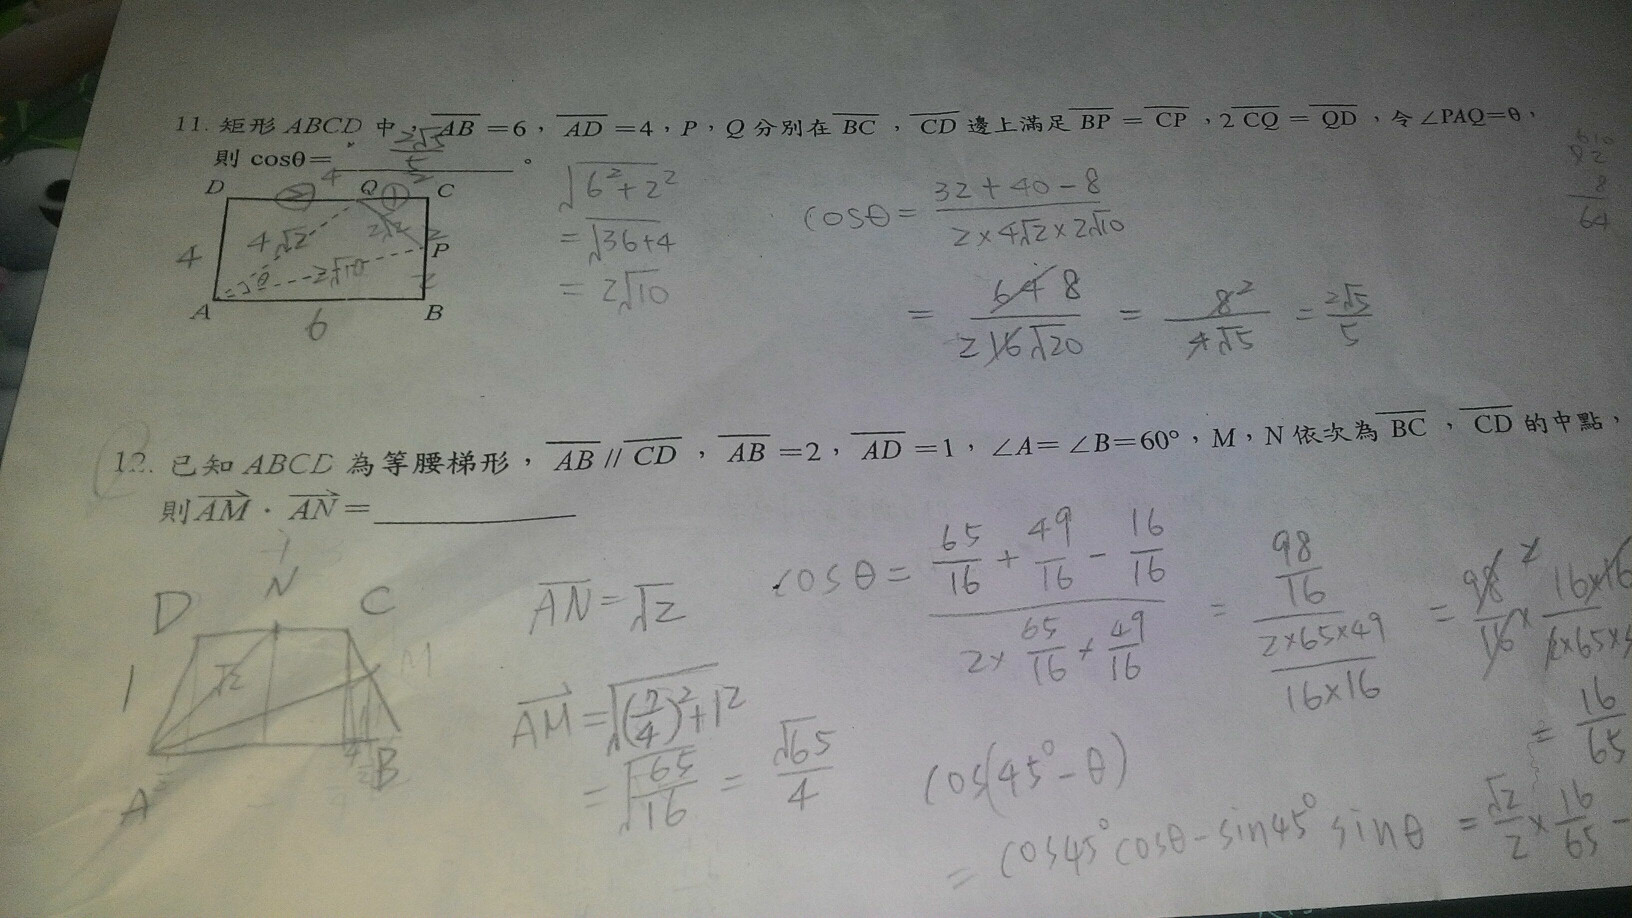 11. 矩形 ABCD 中, AB =6, AD =4, P, Q 分別在 BC, CD 邊上滿足 BP = CP, 2CQ = QD, 令∠PAQ=θ,
則 cosθ= 2√5/5 。
D ② 4 Q ① 2 C
4 4√2 2√2 2 P
θ 2√10 2
A 6 B
√6²+2²
=√36+4
= 2√10
cosθ = 32+40-8 / 2×4√2×2√10
= 64 8 / 2 16√20 = 8 2 / 4√5 = 2√5/5
8
64
12. 已知 ABCD 為等腰梯形, AB // CD, AB =2, AD =1, ∠A= ∠B=60°, M, N 依次為 BC, CD 的中點,
則 AM · AN =
D N C
1 √2 M
A B
AN = √2
AM = √(7/4)²+1²
= √65/16 = √65/4
cosθ = 65/16 + 49/16 - 16/16 / 2× 65/16 × 49/16 = 98/16 / 2×65×49 / 16×16 = 98/16 × 16×16 / 2×65×
= 16/65
cos(45°-θ)
= cos45°cosθ-sin45°sinθ = √2/2 × 16/65 -